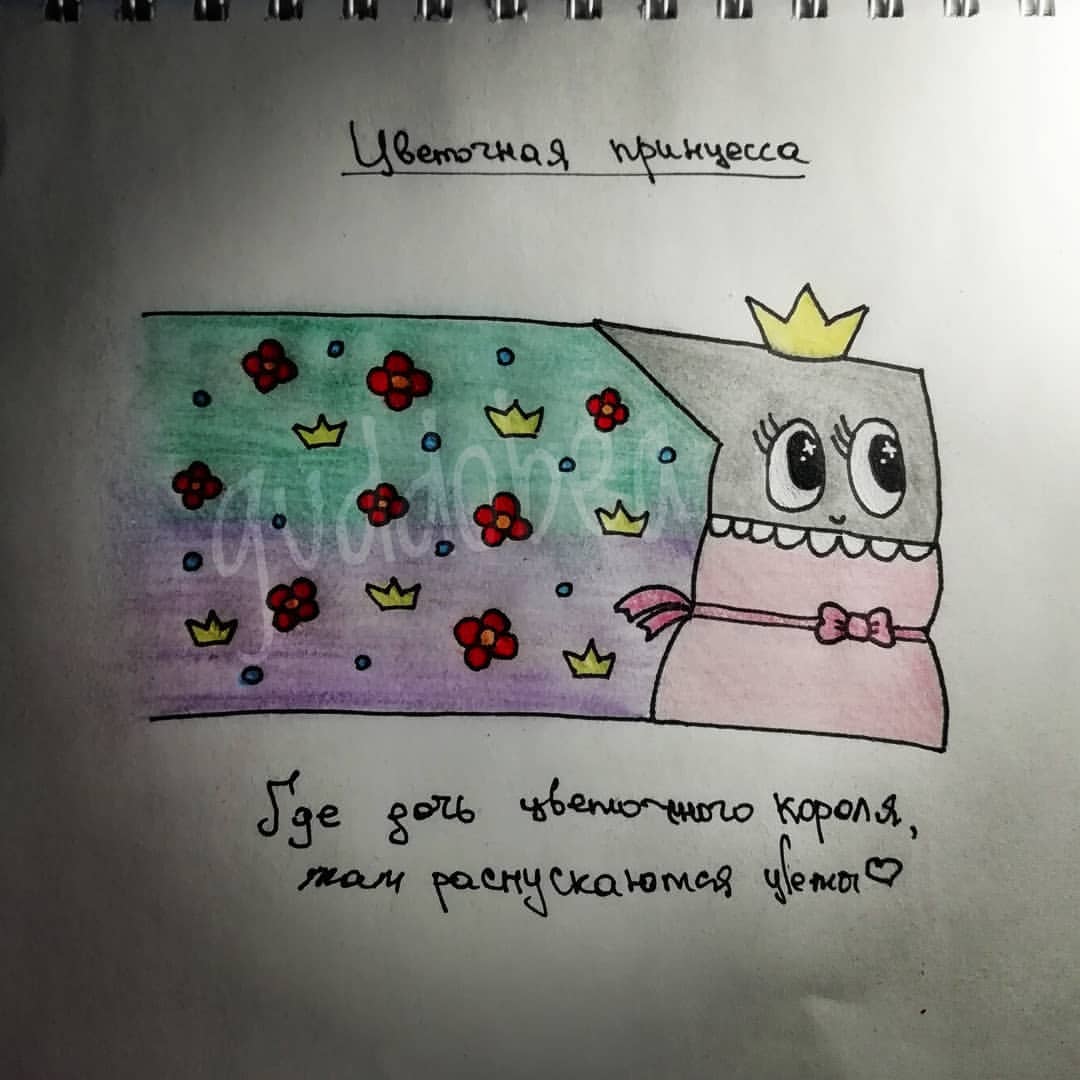 Цветочная принцесса
Где дочь цветочного короля,
там распускаются цветы♡